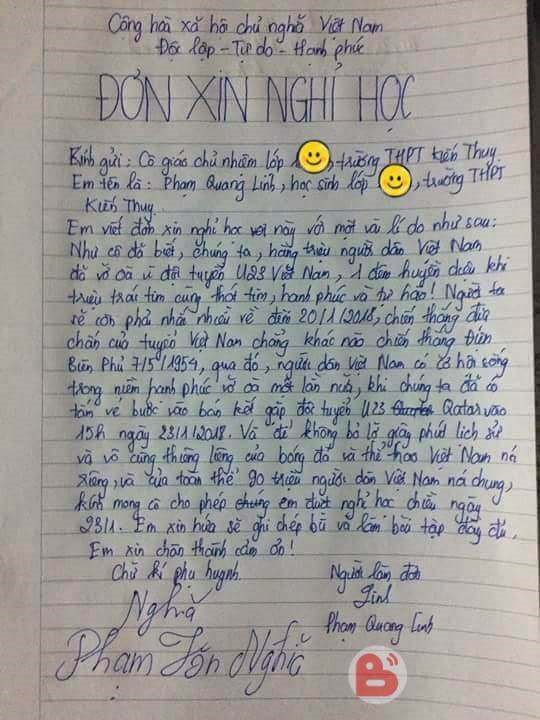 Cộng hòa xã hội chủ nghĩa Việt Nam
Độc lập - Tự do - Hạnh phúc
ĐƠN XIN NGHỈ HỌC
Kính gửi: Cô giáo chủ nhiệm lớp 1, trường THPT Kiến Thụy
Em tên là: Phạm Quang Linh, học sinh lớp, trường THPT
Kiến Thụy
Em viết đơn xin nghỉ học này với một vài lí do như sau:
Như cô đã biết, chúng ta, hàng triệu người dân Việt Nam
đã vỡ oà vì đội tuyển U23 Việt Nam, 1 đêm huyền diệu khi
triệu trái tim cùng thổn tim, hạnh phúc và tự hào! Người ta
sẽ còn phải nhắc nhiều về đêm 20/1/2018, chiến thắng địa
chấn của tuyển Việt Nam chẳng khác nào chiến thắng Điện
Biên Phủ 7/5/1954, qua đó, người dân Việt Nam có cơ hội sống
trong niềm hạnh phúc vỡ oà một lần nữa, khi chúng ta đã có
tấm vé bước vào bán kết gặp đội tuyển U23 Qatar vào
15h ngày 23/1/2018. Và để không bỏ lỡ giây phút lịch sử
và vô cùng thiêng liêng của bóng đá và thể thao Việt Nam nói
riêng, và của toàn thể 90 triệu người dân Việt Nam nói chung,
kính mong cô cho phép chúng em được nghỉ học chiều ngày
23/1. Em xin hứa sẽ ghi chép bù và làm bài tập đầy đủ.
Em xin chân thành cảm ơn!
Chữ kí phụ huynh.
Người làm đơn
Nghĩa
Linh
Phạm Quang Linh
Phạm Văn Nghĩa
B